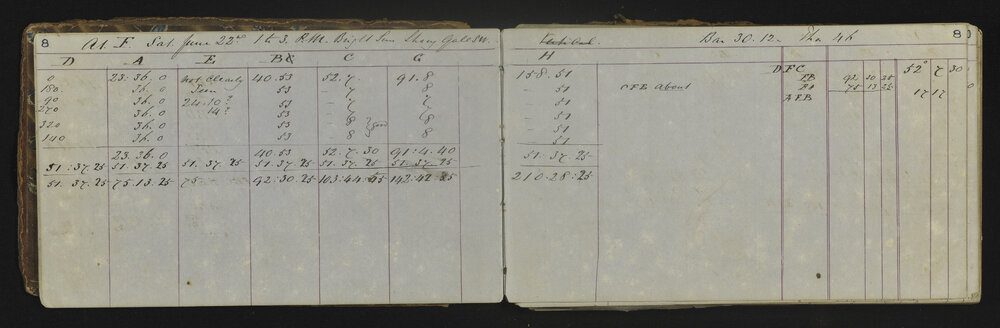 8
At F. Sat. June 22nd 1 to 3. P.M. Bright Sun Strong Gale SW.
D A E B& C G
0 23.36.0 Not Clearly 40.53 52.7. 91.8
180 36.0 Seen 53 - 7 8
90 36.0 24.10? 53 - 7 8
270 36.0 14? 53 - 7 8
320 36.0 53 - 8 good 8
140 36.0 53 - 8 8
23.36.0 40.53 52.7.30 91.4.40
51:37.25 51.37.25 51.37.25 51.37.25 51.37.25 51.37.25
51.37.25 75.13.25 75 92:30.25 103:44.55 142:42.25
Bar 30.12. Ther 46
80
H
158.51
- 51 CFB About
- 51
- 51
- 51
- 51
51.37.25
210.28:25
DFC 52° 7 30
FB 92 30 25
75 13 25
AFB 17 17 0